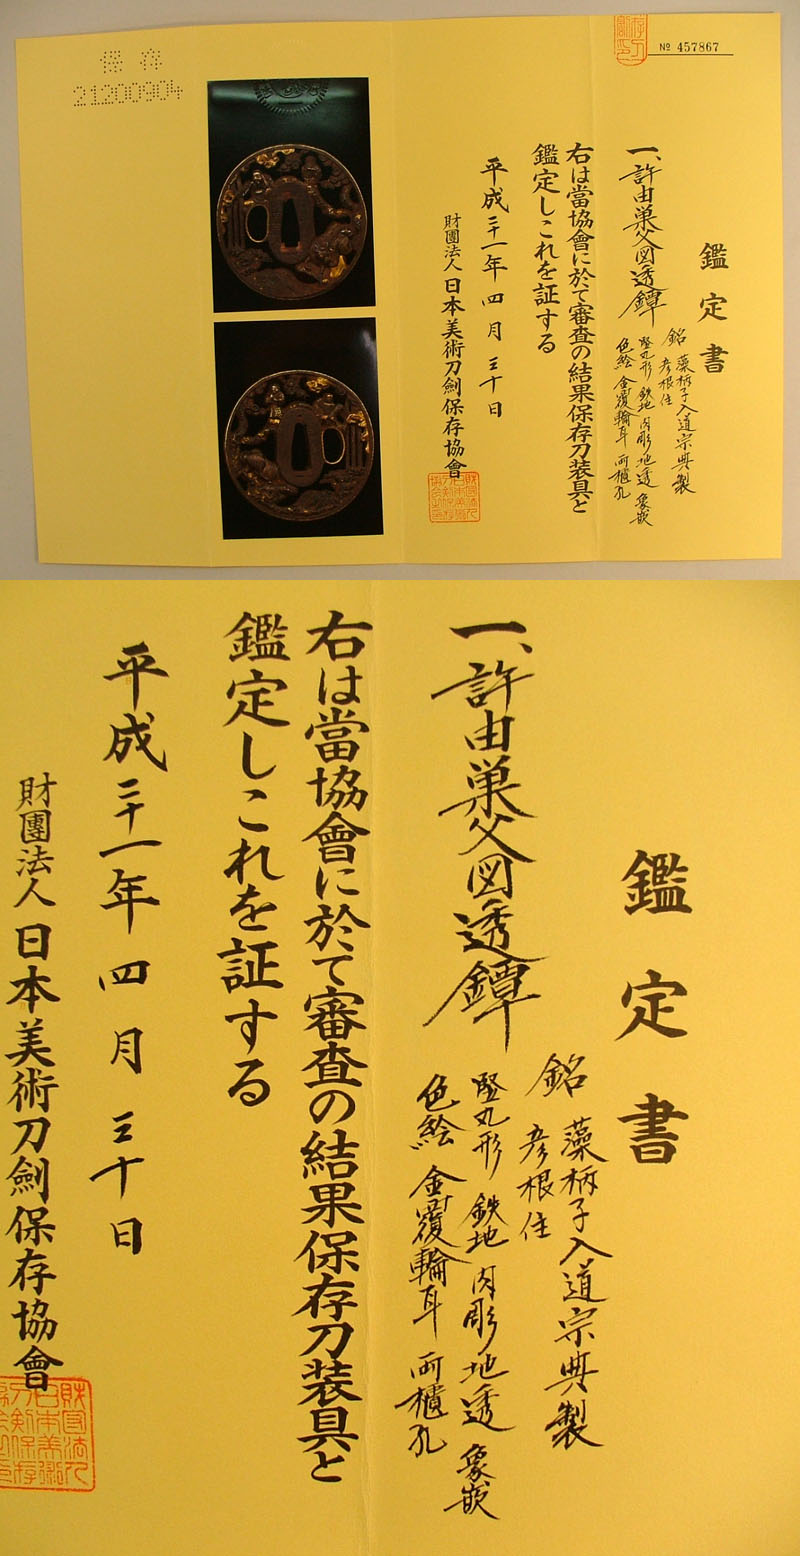 保存
21200904
№ 457867
鑑定書
一、許由巣父図透鐔
銘 藻柄子入道宗典製
彦根住
竪丸形 鉄地 肉彫地透 象嵌
色絵 金覆輪耳 両櫃孔
右は當協會に於て審査の結果保存刀装具と
鑑定しこれを証する
平成二十一年四月三十日
財團法人日本美術刀劍保存協會
鑑定書
一、許由巣父図透鐔
銘 藻柄子入道宗典製
彦根住
竪丸形 鉄地 肉彫地透 象嵌
色絵 金覆輪耳 両櫃孔
右は當協會に於て審査の結果保存刀装具と
鑑定しこれを証する
平成二十一年四月三十日
財團法人日本美術刀劍保存協會